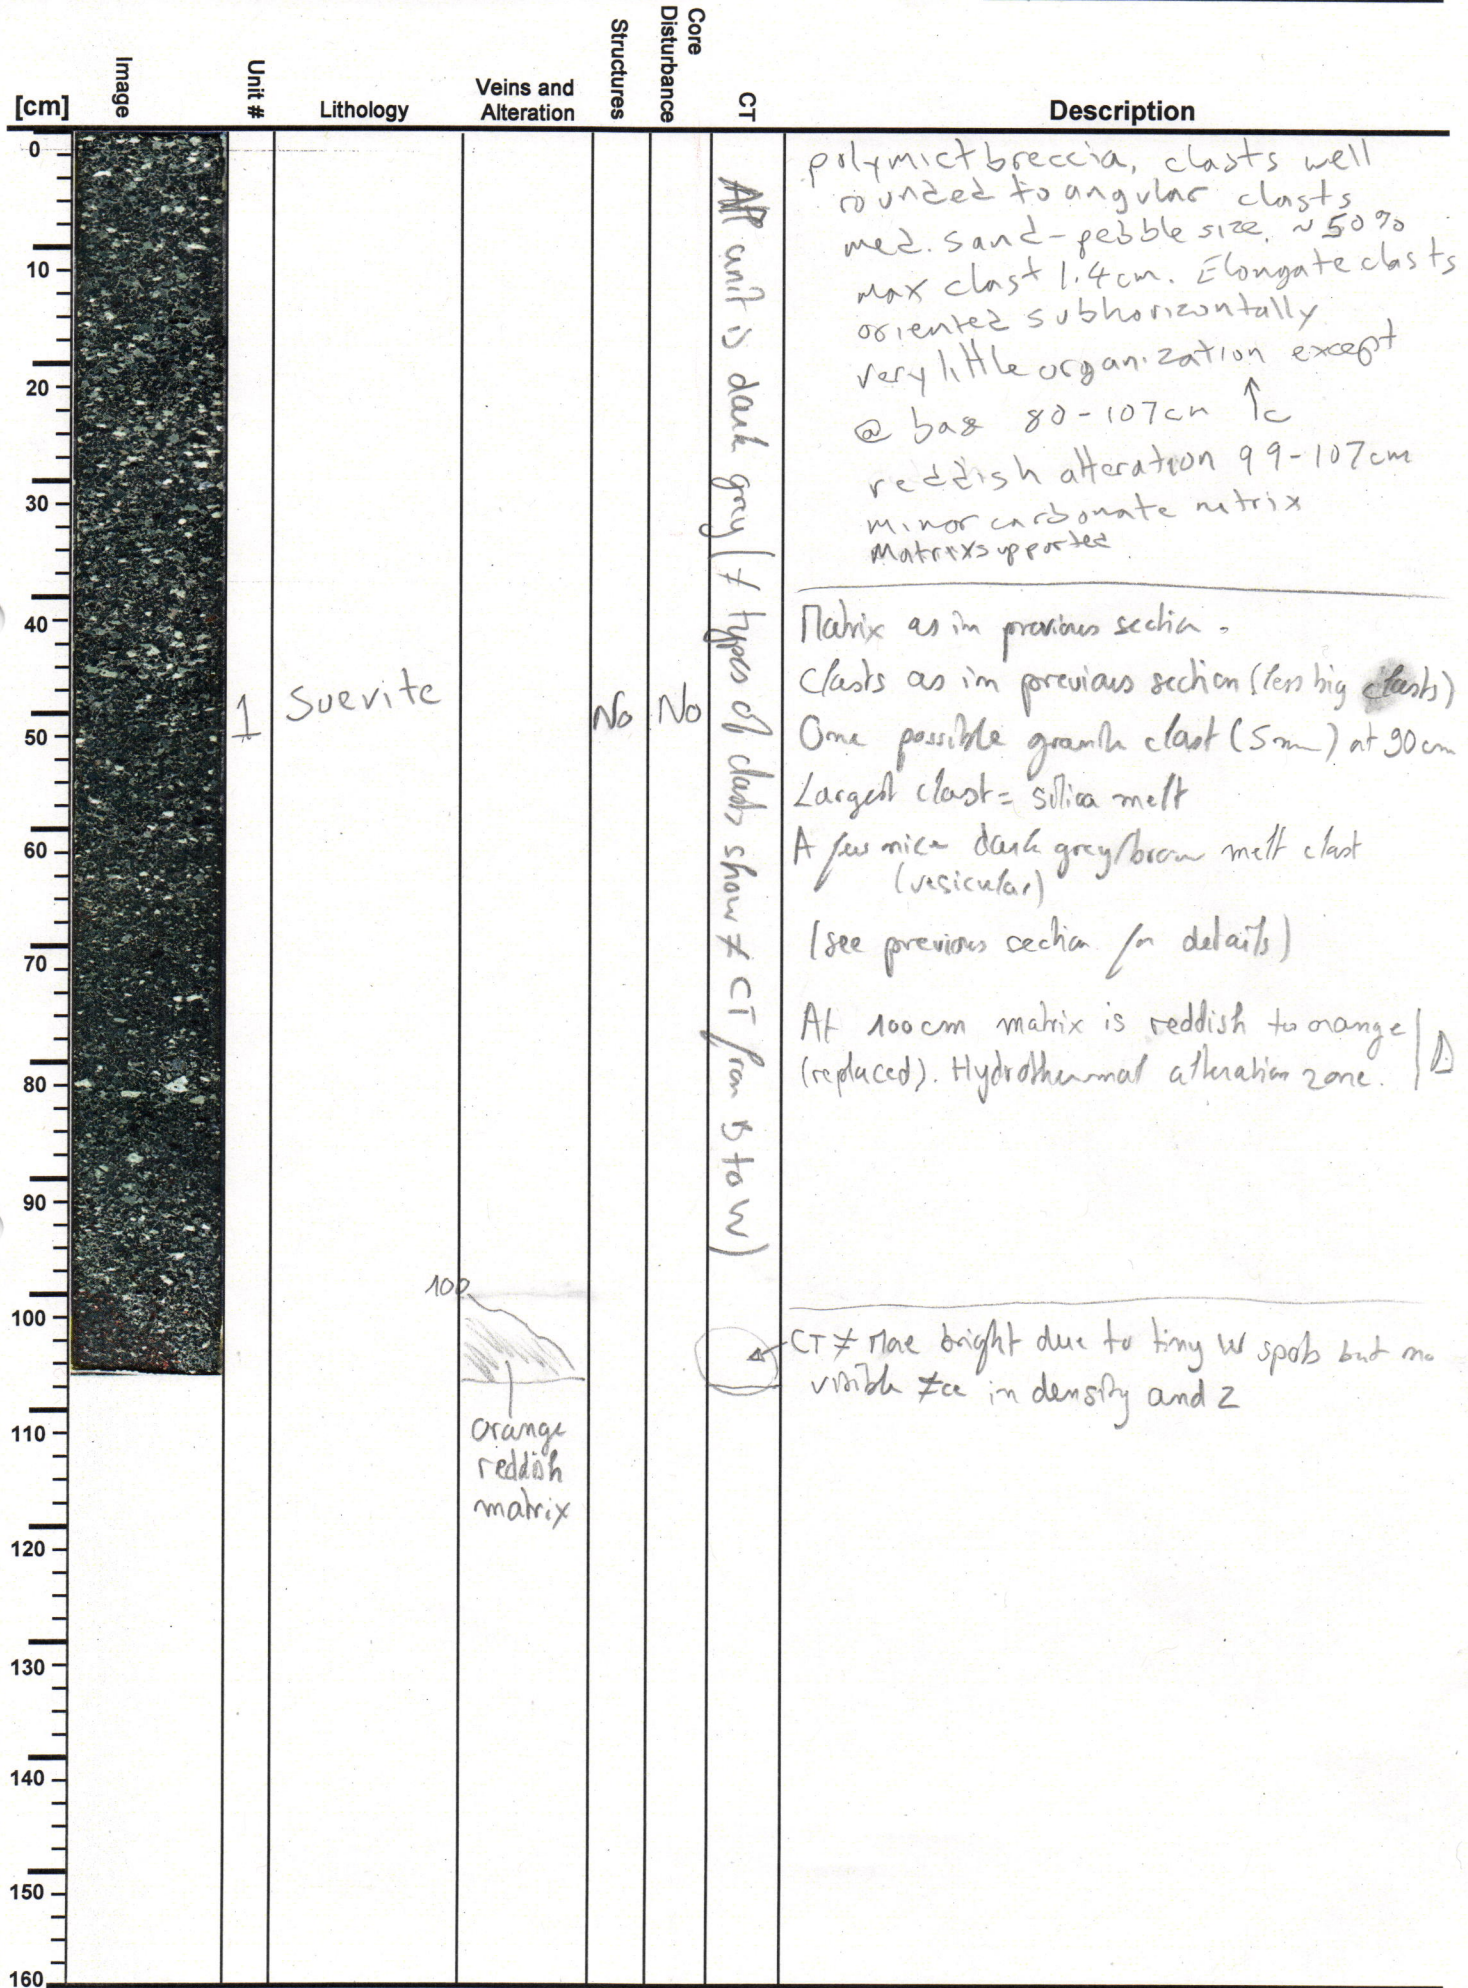 [cm]
Image
Unit #
Lithology
Veins and
Alteration
Structures
Core
Disturbance
CT
Description
0
10
20
30
40
50
60
70
80
90
100
110
120
130
140
150
160
1
Suevite
100
orange
reddish
matrix
No
No
All unit is dark grey (≠ types of clasts show ≠ CT from B to W)
polymict breccia, clasts well
rounded to angular clasts
med. sand-pebble size. ~50%
max clast 1.4cm. Elongate clasts
oriented subhorizontally
very little organization except
@ base 80-107cm ↑c
reddish alteration 99-107cm
minor carbonate matrix
Matrix supported
Matrix as in previous section.
Clasts as in previous section (less big clasts)
One possible granite clast (5mm) at 90cm
Largest clast = silica melt
A few nice dark grey/brown melt clast
(vesicular)
(see previous section for details)
At 100cm matrix is reddish to orange
(replaced). Hydrothermal alteration zone.
CT ≠ More bright due to tiny W spots but no
visible ≠ce in density and Z